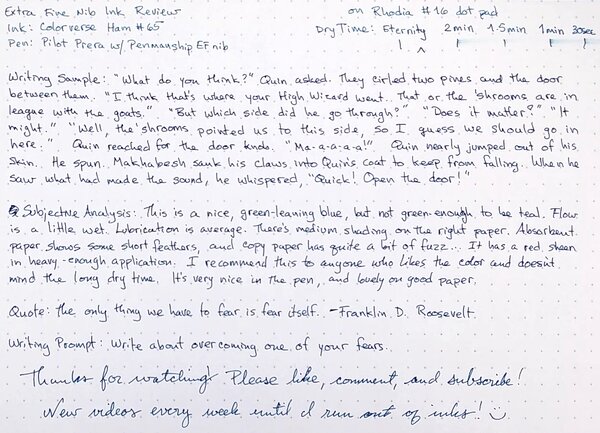 Extra Fine Nib Ink Review on Rhodia #16 dot pad
Ink: Colorverse Ham #65 Dry Time: Eternity 2min 1.5min 1min 30sec
Pen: Pilot Prera w/ Penmanship EF nib
Writing Sample: "What do you think?" Quin asked. They cirled two pines and the door
between them. "I think that's where your High Wizard went. That or the 'shrooms are in
league with the goats." "But which side did he go through?" "Does it matter?" "It
might." "Well, the 'shrooms pointed us to this side, so I guess we should go in
here." Quin reached for the door knob. "Ma-a-a-a-a!" Quin nearly jumped out of his
skin. He spun. Makhabesh sank his claws into Quin's coat to keep from falling. When he
saw what had made the sound, he whispered, "Quick! Open the door!"
Subjective Analysis: This is a nice, green-leaning blue, but not green enough to be teal. Flow
is a little wet. Lubrication is average. There's medium shading on the right paper. Absorbent
paper shows some short feathers, and copy paper has quite a bit of fuzz... It has a red sheen
in heavy-enough application. I recommend this to anyone who likes the color and doesn't
mind the long dry time. It's very nice in the pen, and lovely on good paper.
Quote: The only thing we have to fear is fear itself. -Franklin D. Roosevelt
Writing Prompt: Write about overcoming one of your fears.
Thanks for watching! Please like, comment, and subscribe!
New videos every week until I run out of inks!